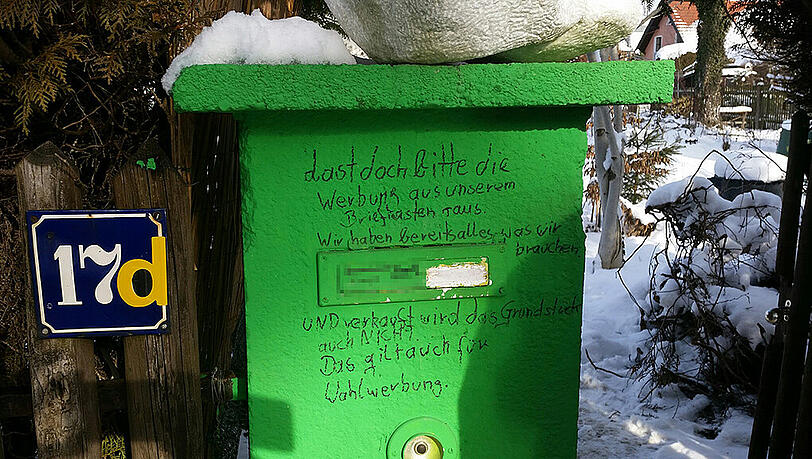 17d
Last doch bitte die
Werbung aus unserem
Briefkasten raus.
Wir haben bereits alles was wir
brauchen
UND verkauft wird das Grundstück
auch NICHT.
Das gilt auch für
Wahlwerbung.